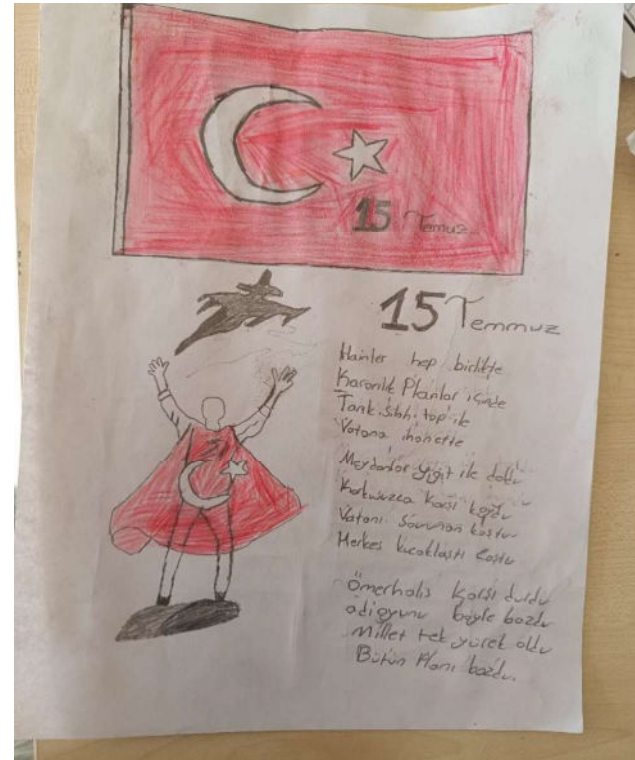 15 Temuz
15 Temmuz
Hainler hep birlikte
Karanlık Planlar içinde
Tank. silah. top ile
Vatana ihanette
Meydanlar yiğit ile doldu
Korkusuzca karşı koydu
Vatanı savunan koştu
Herkes kucaklaştı coştu
Ömerhalis karşı durdu
adi oyunu böyle bozdu
Millet tek yürek oldu
Bütün Planı bozdu.